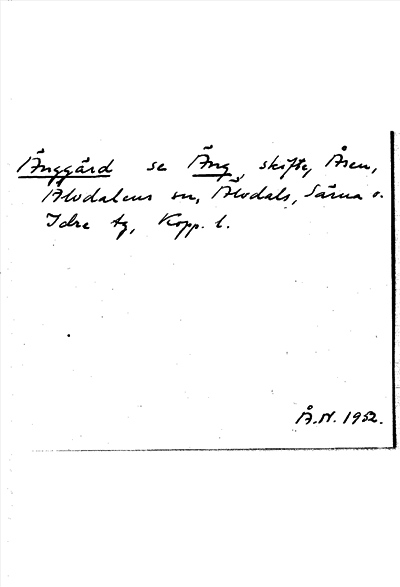 Änggärd se Äng, skifte, Åsen,
Älvdalens sn, Älvdals, Särna o.
Idre tg, Kopp. l.
Å.N. 1952.